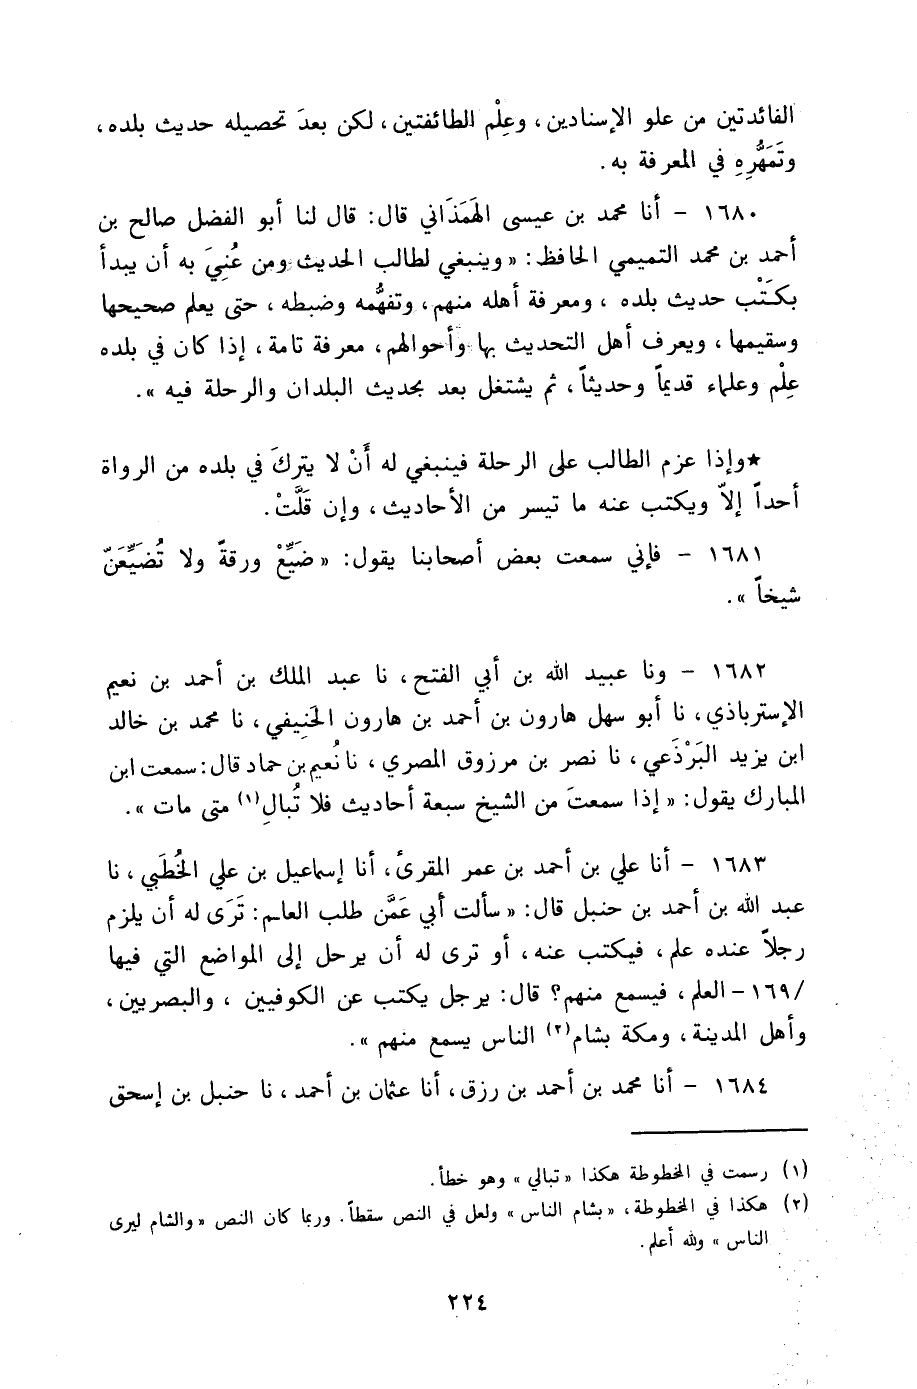 الفائدتين من علو الإسنادين، وعِلْم الطائفتين، لكن بعدَ تحصيله حديث بلده،
وتَمَهُّرِهِ في المعرفة به.
١٦٨٠ - أنا محمد بن عيسى الهَمَذَاني قال: قال لنا أبو الفضل صالح بن
أحمد بن محمد التميمي الحافظ: «وينبغي لطالب الحديث ومن عُنِيَ به أن يبدأ
بكَتْب حديث بلده، ومعرفة أهله منهم، وتفهُّمه وضبطه، حتى يعلم صحيحها
وسقيمها، ويعرف أهل التحديث بها وأحوالهم، معرفة تامة، إذا كان في بلده
عِلْم وعلماء قديماً وحديثاً، ثم يشتغل بعد بحديث البلدان والرحلة فيه».
★وإذا عزم الطالب على الرحلة فينبغي له أَنْ لا يتركَ في بلده من الرواة
أحداً إلاّ ويكتب عنه ما تيسر من الأحاديث، وإن قَلَّتْ.
١٦٨١ - فإني سمعت بعض أصحابنا يقول: «ضَيِّعْ ورقةً ولا تُضَيِّعَنّ
شيخاً».
١٦٨٢ - ونا عبيد الله بن أبي الفتح، نا عبد الملك بن أحمد بن نعيم
الإسترباذي، نا أبو سهل هارون بن أحمد بن هارون الحَنِيفي، نا محمد بن خالد
ابن يزيد البَرْذَعي، نا نصر بن مرزوق المصري، نا نُعيم بن حماد قال: سمعت ابن
المبارك يقول: «إذا سمعتَ من الشيخ سبعة أحاديث فلا تُبالِ(١) متى مات».
١٦٨٣ - أنا علي بن أحمد بن عمر المقرئ، أنا إسماعيل بن علي الخُطَبي، نا
عبد الله بن أحمد بن حنبل قال: «سألت أبي عَمَّن طلب العلم: تَرَى له أن يلزم
رجلاً عنده علم، فيكتب عنه، أو ترى له أن يرحل إلى المواضع التي فيها
/١٦٩- العلم، فيسمع منهم؟ قال: يرحل يكتب عن الكوفيين، والبصريين،
وأهل المدينة، ومكة بشام(٢) الناس يسمع منهم».
١٦٨٤ - أنا محمد بن أحمد بن رزق، أنا عثمان بن أحمد، نا حنبل بن إسحق
(١) رسمت في المخطوطة هكذا «تبالي» وهو خطأ.
(٢) هكذا في المخطوطة، «بشام الناس» ولعل في النص سقطاً. وربما كان النص «والشام ليرى
الناس» ولله أعلم.
٢٢٤